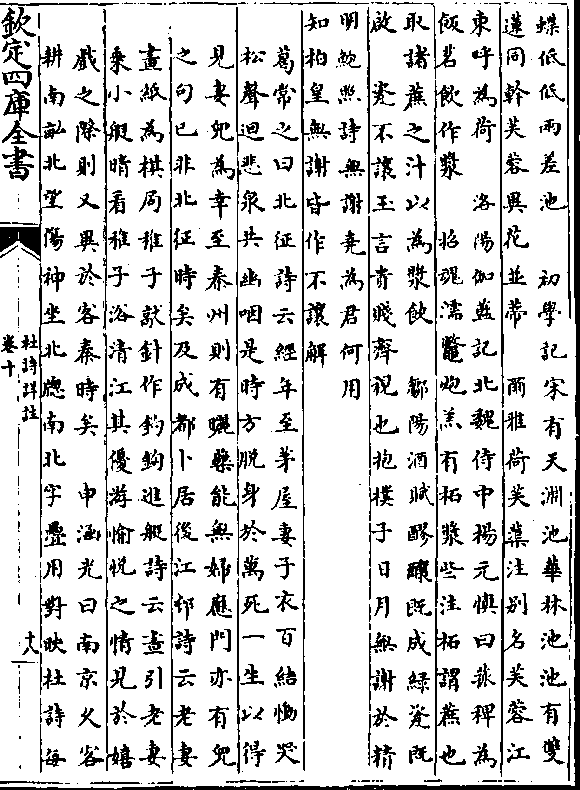 蝶低低兩差池　初學記宋有天淵池華林池池有雙
蓮同幹芙蓉異花並蒂　爾雅荷芙蕖注别名芙蓉江
東呼為荷　洛陽伽藍記北魏侍中楊元慎曰菰稗為
飯茗飲作漿　招魂濡鼈炮羔有柘漿些注柘謂蔗也
取諸蔗之汁以為漿飲　鄒陽酒賦醪釀既成綠瓷既
啟　瓷不讓玉言貴賤齊視也抱樸子日月無謝於精
明鮑照詩無謝堯為君何用
知柏皇無謝皆作不讓解
葛常之曰北征詩云經年至茅屋妻子衣百結慟哭
松聲迴悲泉共幽咽是時方脱身於萬死一生以得
見妻兒為幸至秦州則有曬藥能無婦應門亦有兒
之句已非北征時矣及成都卜居後江邨詩云老妻
畫紙為棋局稚子敲針作釣鉤進艇詩云晝引老妻
乘小艇晴看稚子浴清江其優游愉悦之情見於嬉
戲之際則又異於客秦時矣　申涵光曰南京久客
耕南畝北望傷神坐北牕南北字疊用對映杜詩每
欽定四庫全書
杜詩詳註
卷十
十八